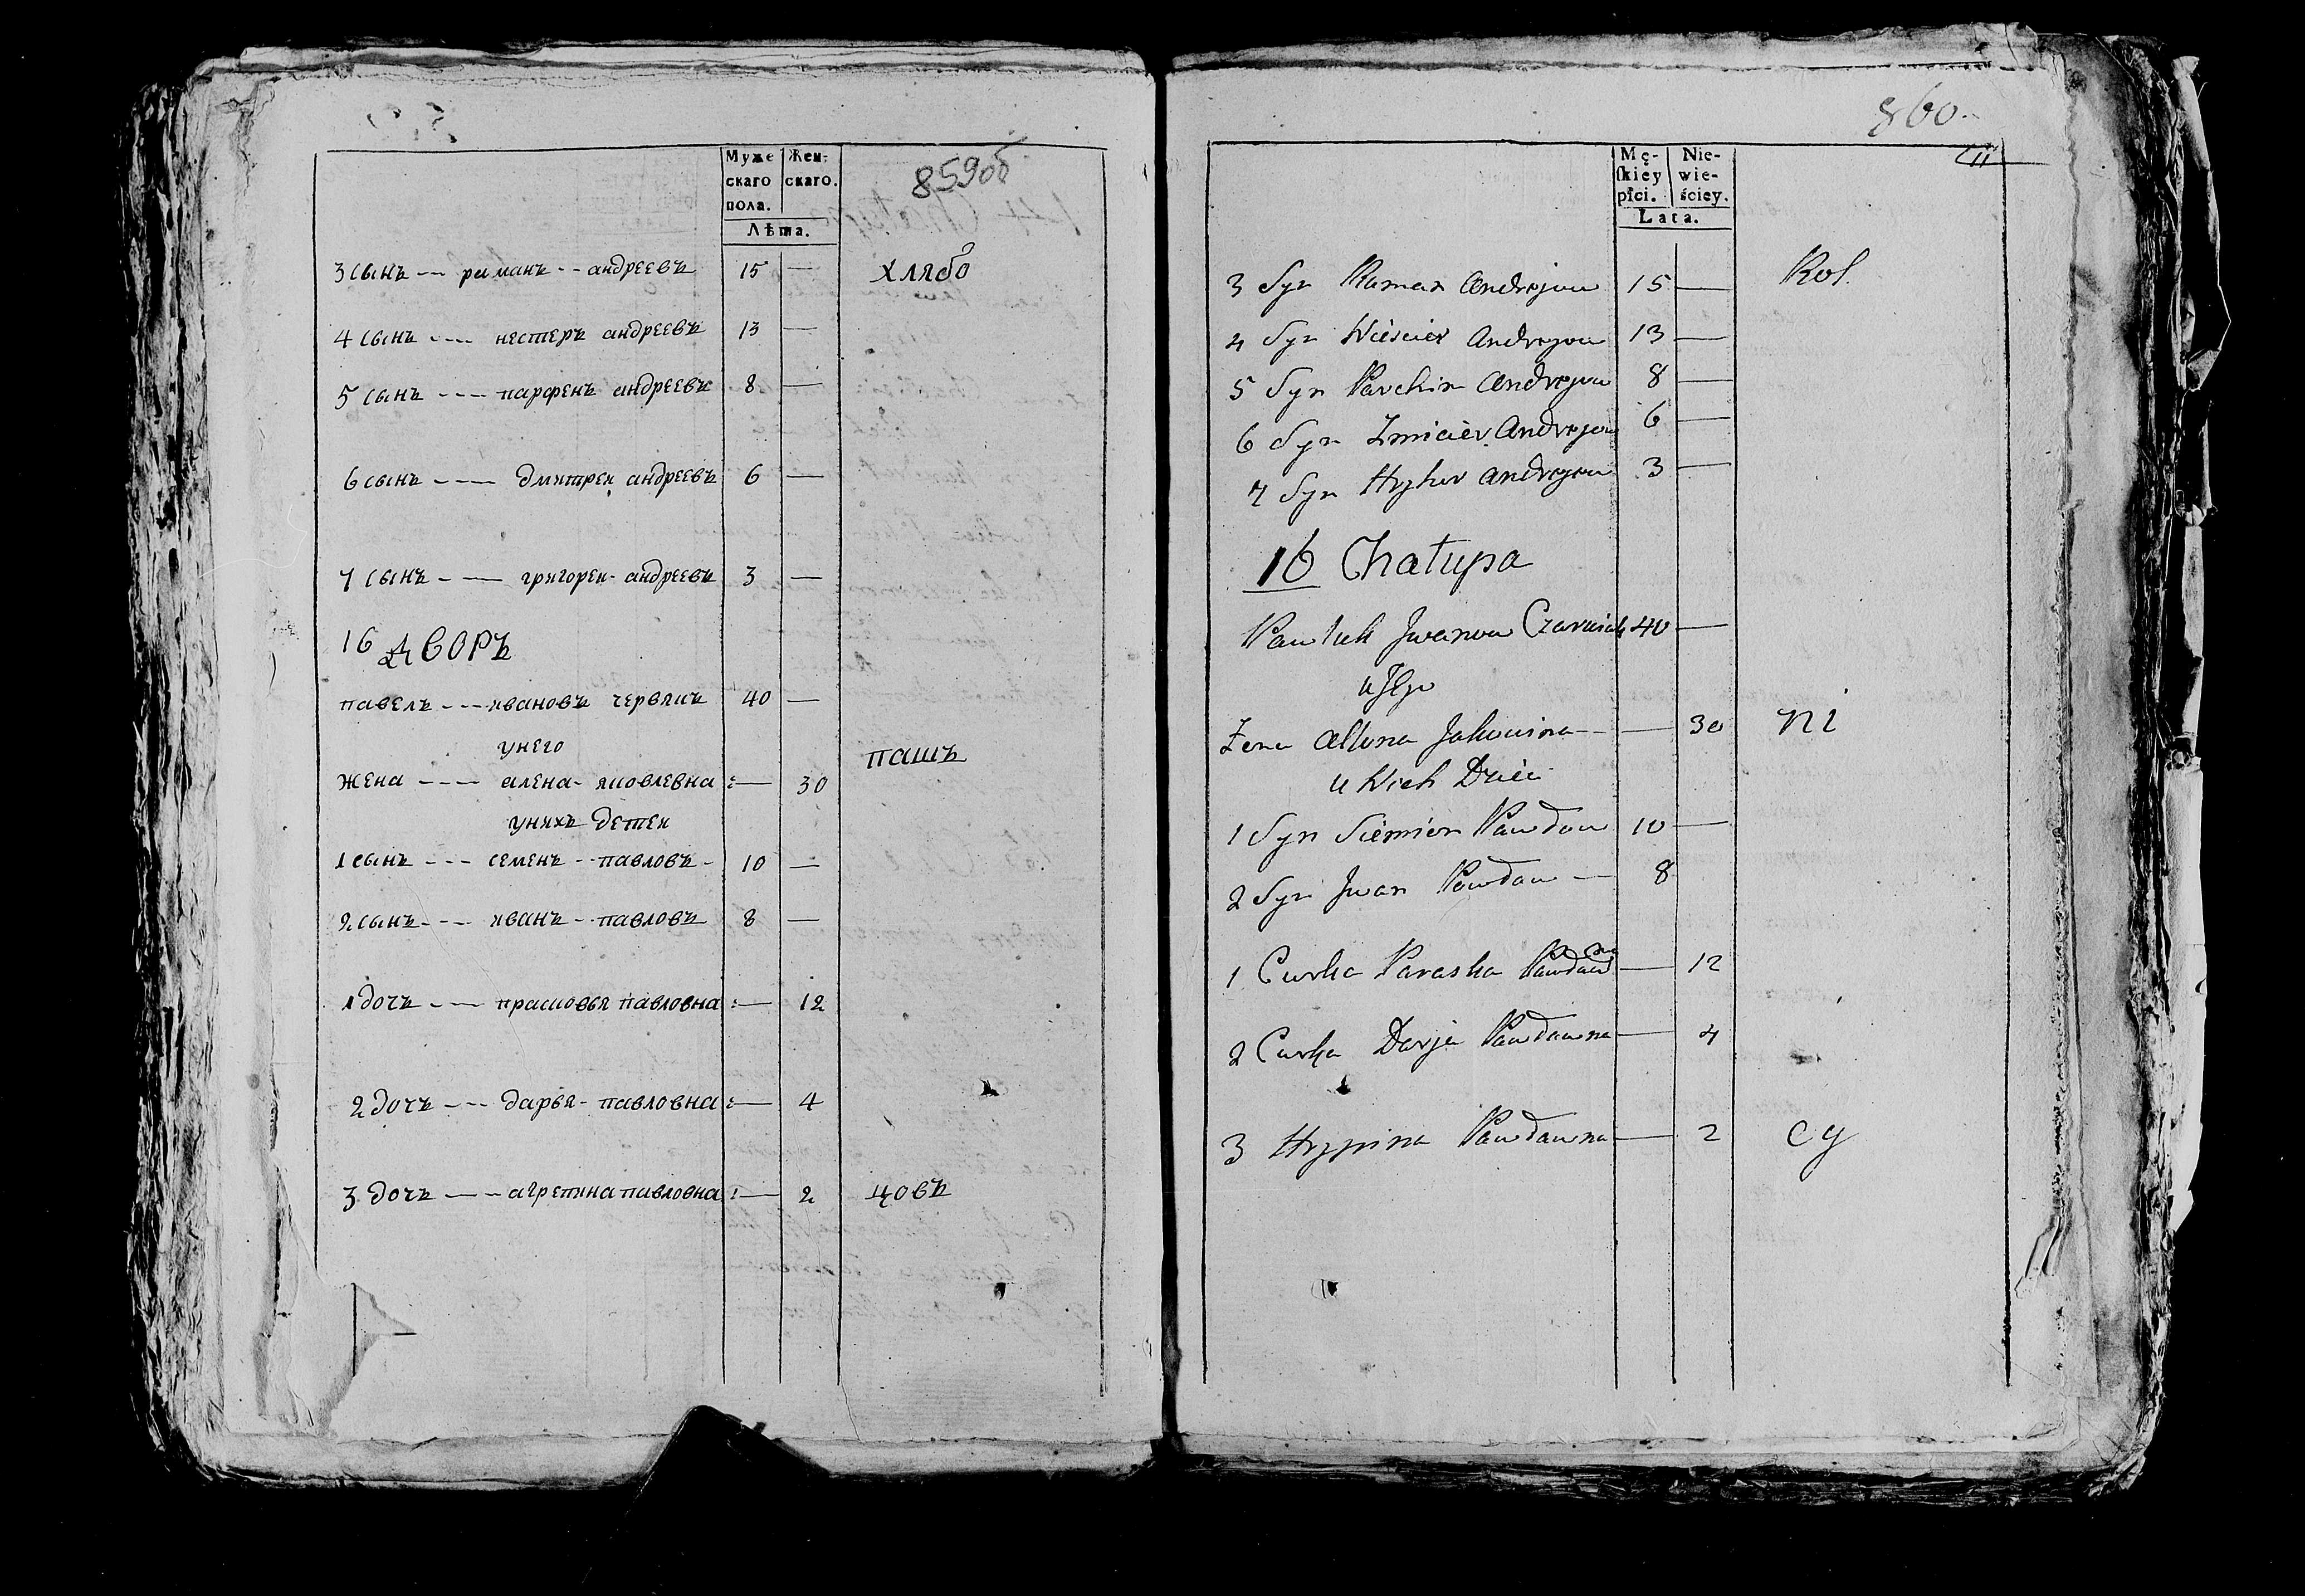 859об
Муже
скаго
пола.
Жен-
скаго.
Лѣта.
3 сынъ --- раманъ -- андреевъ 15 — хлябо
4 сынъ ---- нестеръ андреевъ 13 —
5 сынъ --- парфенъ андреевъ 8 —
6 сынъ ---- дмитреи андреевъ 6 —
7 сынъ ---- григореи - андреевъ 3 —
16 дворъ
павелъ --- ивановъ червякъ 40 —
унего
пашъ
жена ---- алена - яковлевна :— 30
унихъ детеи
1 сынъ --- семенъ -- павловъ - 10 —
2 сынъ --- иванъ -- павловъ 8 —
1 дочъ --- прасковья павловна :— 12
2 дочъ --- дарья - павловна :— 4
3 дочъ ---- агрепина павловна :— 2 цовъ
860.
Mę-
skiey
płci.
Nie-
wie-
ściey.
Lata.
3 Syn Raman Andrejow 15 — Rol.
4 Syn Nieścier Andrejow 13 —
5 Syn Parchin Andrejow 8 —
6 Syn Zmicier Andrejow 6 —
7 Syn Hryhor Andrejow 3 —
16 Chałupa
Pawluk Jwanow Czarwiak 40 —
u Jego
Żona Allona Jakowina -- — 30 ni
u Nich Dzieci
1 Syn Siemion Pawłow 10 —
2 Syn Jwan Pawłow — 8
1 Curka Paraska Pawłowna — 12
2 Curka Darja Pawławna — 4
3 Hrypina Pawławna — 2 cy